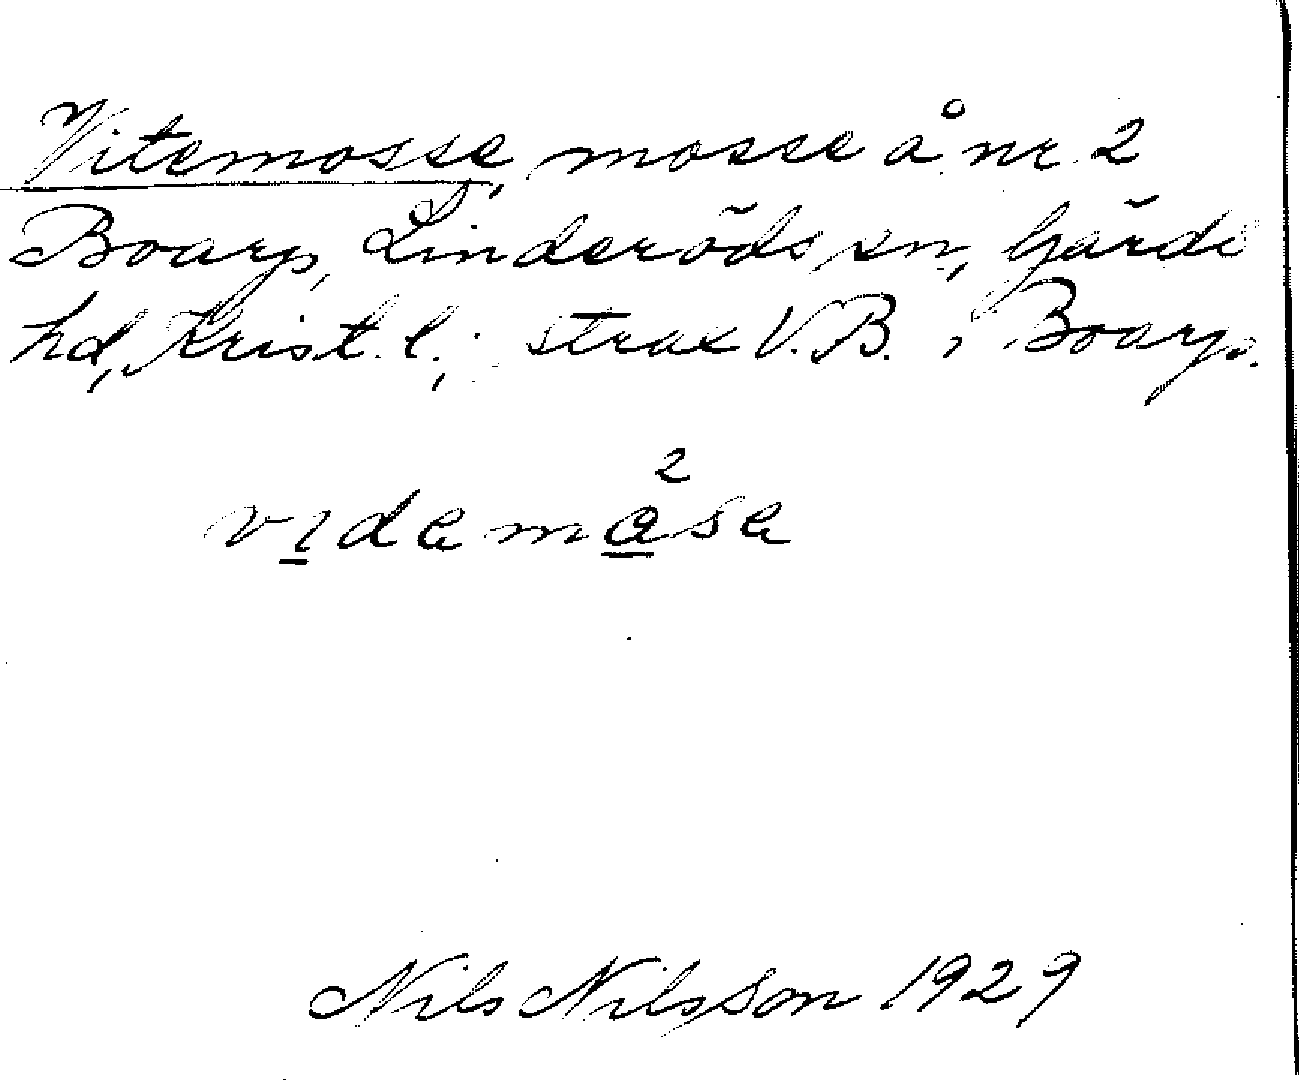 Vitemosse, mosse å nr 2
Boarp, Linderöds sn, Gärds
hd, Krist. l.; strax V. B. i Boarp.
vıdamåsa 2
Nils Nilsson 1929